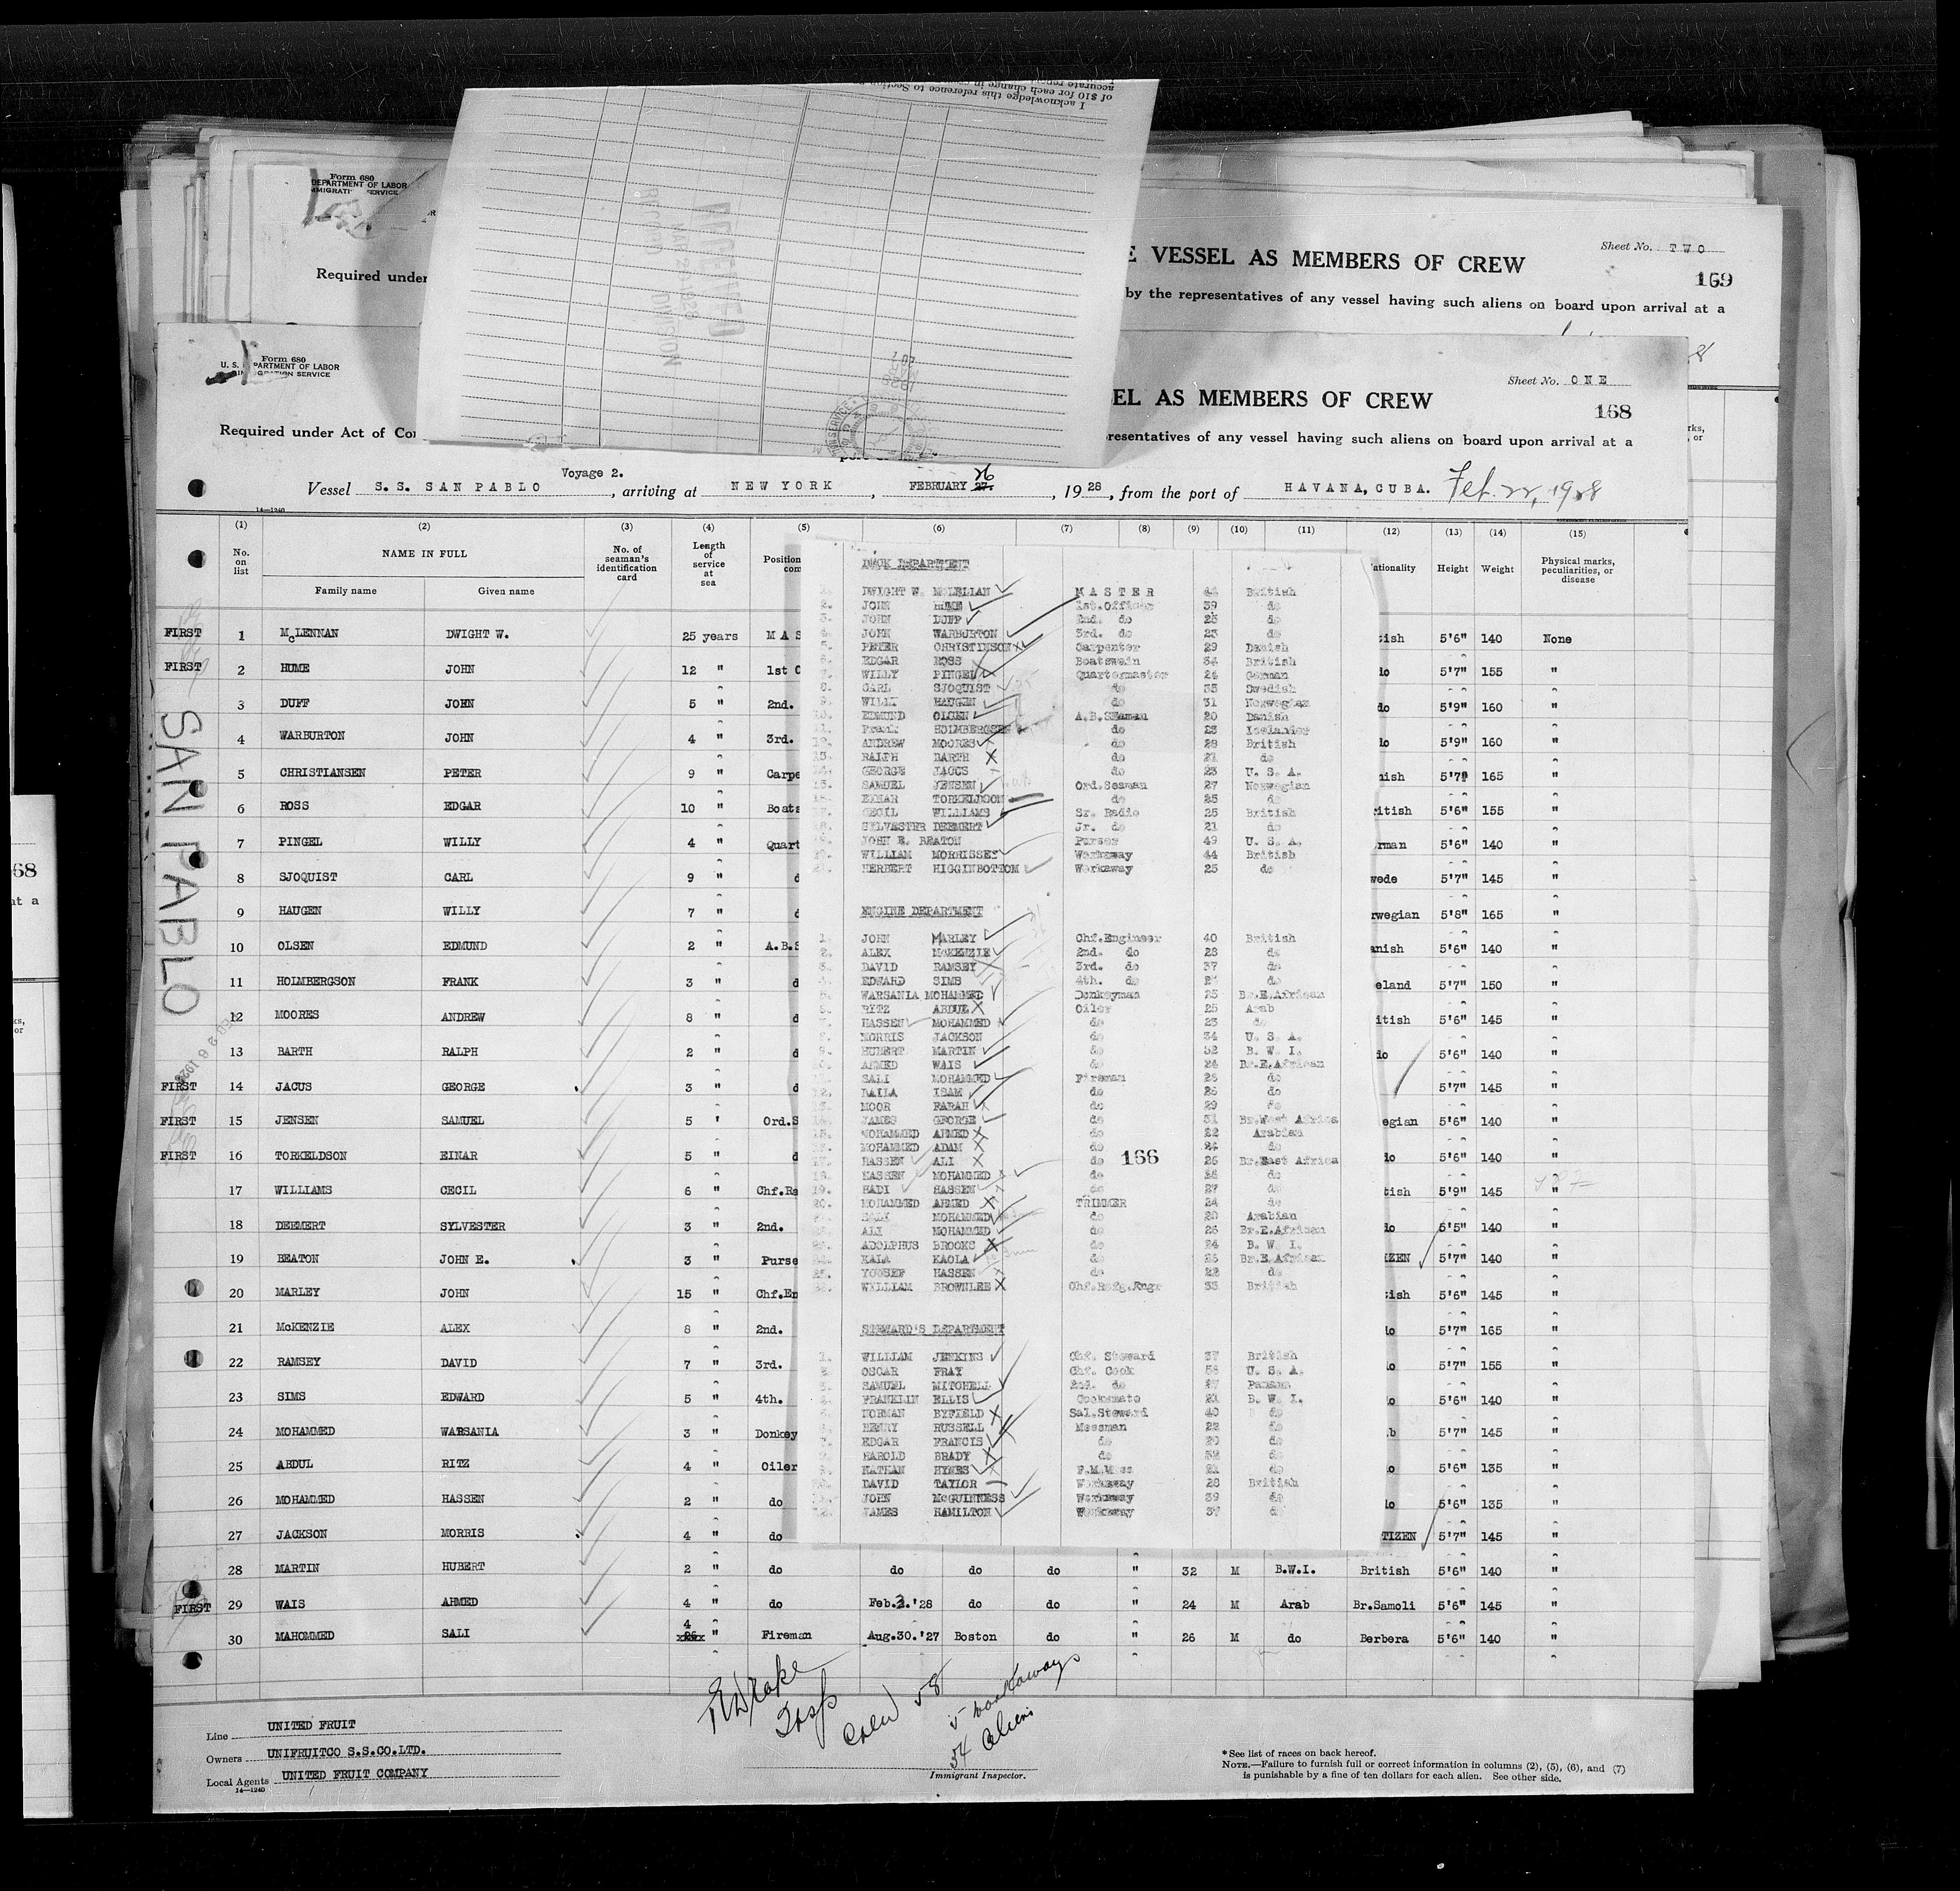 I acknowledge this reference to Section
of $10 for each change in
accurate report
RECEIVED
MAR 2 1928
RECORD DIVISION
Form 680
DEPARTMENT OF LABOR
Required under
E VESSEL AS MEMBERS OF CREW
Sheet No. TWO
169
by the representatives of any vessel having such aliens on board upon arrival at a
Form 680
U. S. DEPARTMENT OF LABOR
IMMIGRATION SERVICE
Sheet No. ONE
EL AS MEMBERS OF CREW
168
Required under Act of Con
resentatives of any vessel having such aliens on board upon arrival at a
Voyage 2.
Vessel S.S. SAN PABLO, arriving at NEW YORK, FEBRUARY 27. 26, 1928, from the port of HAVANA, CUBA. Feb. 22, 1928
(1) (2) (3) (4) (5) (6) (7) (8) (9) (10) (11) (12) (13) (14) (15)
No. on list
NAME IN FULL
Family name Given name
No. of seaman's identification card
Length of service at sea
Position
ationality Height Weight
Physical marks, peculiarities, or disease
SAN PABLO
FIRST 1 McLENNAN DWIGHT W. 25 years MAS tish 5'6" 140 None
FIRST 2 HUME JOHN 12 " 1st O do 5'7" 155 "
3 DUFF JOHN 5 " 2nd. do 5'9" 160 "
4 WARBURTON JOHN 4 " 3rd. do 5'9" 160 "
5 CHRISTIANSEN PETER 9 " Carpe nish 5'7" 165 "
6 ROSS EDGAR 10 " Boats ritish 5'6" 155 "
7 PINGEL WILLY 4 " Quart rman 5'6" 140 "
8 SJOQUIST CARL 9 " d wede 5'7" 145 "
9 HAUGEN WILLY 7 " d rwegian 5'8" 165 "
10 OLSEN EDMUND 2 " A.B.S anish 5'6" 140 "
11 HOLMBERGSON FRANK 3 " d eland 5'7" 150 "
12 MOORES ANDREW 8 " d itish 5'6" 145 "
13 BARTH RALPH 2 " d do 5'6" 140 "
FIRST 14 JACUS GEORGE 3 " d 5'7" 145 "
FIRST 15 JENSEN SAMUEL 5 ' Ord.S egian 5'6" 140 "
FIRST 16 TORKELDSON EINAR 5 " d do 5'6" 140 "
17 WILLIAMS CECIL 6 " Chf.Ra tish 5'9" 145 "
18 DEEMERT SYLVESTER 3 " 2nd. do 5'5" 140 "
19 BEATON JOHN E. 3 " Purse IZEN 5'7" 140 "
20 MARLEY JOHN 15 " Chf.En tish 5'6" 145 "
21 McKENZIE ALEX 8 " 2nd. do 5'7" 165 "
22 RAMSEY DAVID 7 " 3rd. o 5'7" 155 "
23 SIMS EDWARD 5 " 4th. do 5'6" 140 "
24 MOHAMMED WARSANIA 3 " Donkey b 5'7" 145 "
25 ABDUL RITZ 4 " Oiler o 5'6" 135 "
26 MOHAMMED HASSEN 2 " do do 5'6" 135 "
27 JACKSON MORRIS 4 " do TIZEN 5'7" 145 "
28 MARTIN HUBERT 2 " do do do do " 32 M B.W.I. British 5'6" 140 "
FIRST 29 WAIS AHMED 4 " do Feb.2.'28 do do " 24 M Arab Br.Samoli 5'6" 145 "
30 MAHOMMED SALI 4 " Fireman Aug.30.'27 Boston do " 26 M do Berbera 5'6" 140 "
DECK DEPARTMENT
1. DWIGHT W. McLELLAN MASTER 44 British
2. JOHN HUME 1st.Officer 39 do
3. JOHN DUFF 2nd. do 25 do
4. JOHN WARBURTON 3rd. do 23 do
5. PETER CHRISTINSON Carpenter 29 Danish
6. EDGAR ROSS Boatswain 34 British
7. WILLY PINGEL Quartermaster 24 German
8. CARL SJOQUIST do 35 Swedish
9. WILLY HAUGEN do 31 Norwegian
10. EDMUND OLSEN A.B.SEaman 20 Danish
11. Frank HOLMBERGSEN do 23 Icelander
12. ANDREW MOORES do 28 British
13. RALPH BARTH do 21 do
14. GEORGE JACUS do 23 U. S. A.
15. SAMUEL JENSEN Ord.Seaman 27 Norwegian
16. EINAR TORKELDSON do 25 do
17. CECIL WILLIAMS Sr. Radio 25 British
18. SYLVESTER DEEMERT Jr. do 21 do
JOHN E. BEATON Purser 49 U. S. A.
WILLIAM MORRISSEY Workaway 44 British
HERBERT HIGGINBOTTOM Workaway 25 do
ENGINE DEPARTMENT
1. JOHN MARLEY Chf.Engineer 40 British
2. ALEX McKENZIE 2nd. do 28 do
3. DAVID RAMSEY 3rd. do 37 do
EDWARD SIMS 4th. do do
WARSANIA MOHAMMED Donkeyman 25 Br.E.African
RITZ ABDUL Oiler 25 Arab
HASSEN MOHAMMED do 23 do
MORRIS JACKSON do 34 U. S. A.
HUBERT MARTIN do 32 B. W. I.
AHMED WAIS do 24 Br.E.African
SALI MOHAMMED Fireman 26 do
12. DAILA ISAM do 26 do
MOOR FARAH do 29 do
JAMES GEORGE do 31 Br.West Africa
15. MOHAMMED AHMED do 22 Arabian
MOHAMMED ADAM do 24 do
HASSEN ALI do 166 26 Br.East Africa
18. HASSEN MOHAMMED do do
19. HADI HASSEN do 27 do
20. MOHAMMED AHMED TRIMMER 24 do
MOHAMMED do Arabian
ALI MOHAMMED do 26 Br.E.African
ADOLPHUS BROOKS do 24 B. W. I.
KALA KAOLA do Br.E.African
25. YOUSEF HASSEN do 22 do
WILLIAM BROWNLEE Chf.Refg.Engr 33 British
STEWARD'S DEPARTMENT
1. WILLIAM JENKINS Chf. Steward 37 British
OSCAR FRAY Chf. Cook U. S. A.
SAMUEL MITCHELL 2nd. do Panam
FRANKLIN ELLIS Cooksmate 21 B. W. I.
NORMAN BYFIELD Sal.Steward 40 do
HENRY RUSSELL Messman 22 do
EDGAR FRANCIS do do
HAROLD BRADY do 32 do
NATHAN HYNES 21 do
DAVID TAYLOR Workaway 28 British
JOHN McGUINNESS Workaway 39 do
12. JAMES HAMILTON Workaway 37 do
Drake
Insp
Crew 58
5 workaways
54 aliens
Immigrant Inspector.
Line UNITED FRUIT
Owners UNIFRUITCO S.S.CO.LTD.
Local Agents UNITED FRUIT COMPANY
14—1240
* See list of races on back hereof.
NOTE.—Failure to furnish full or correct information in columns (2), (5), (6), and (7)
is punishable by a fine of ten dollars for each alien. See other side.